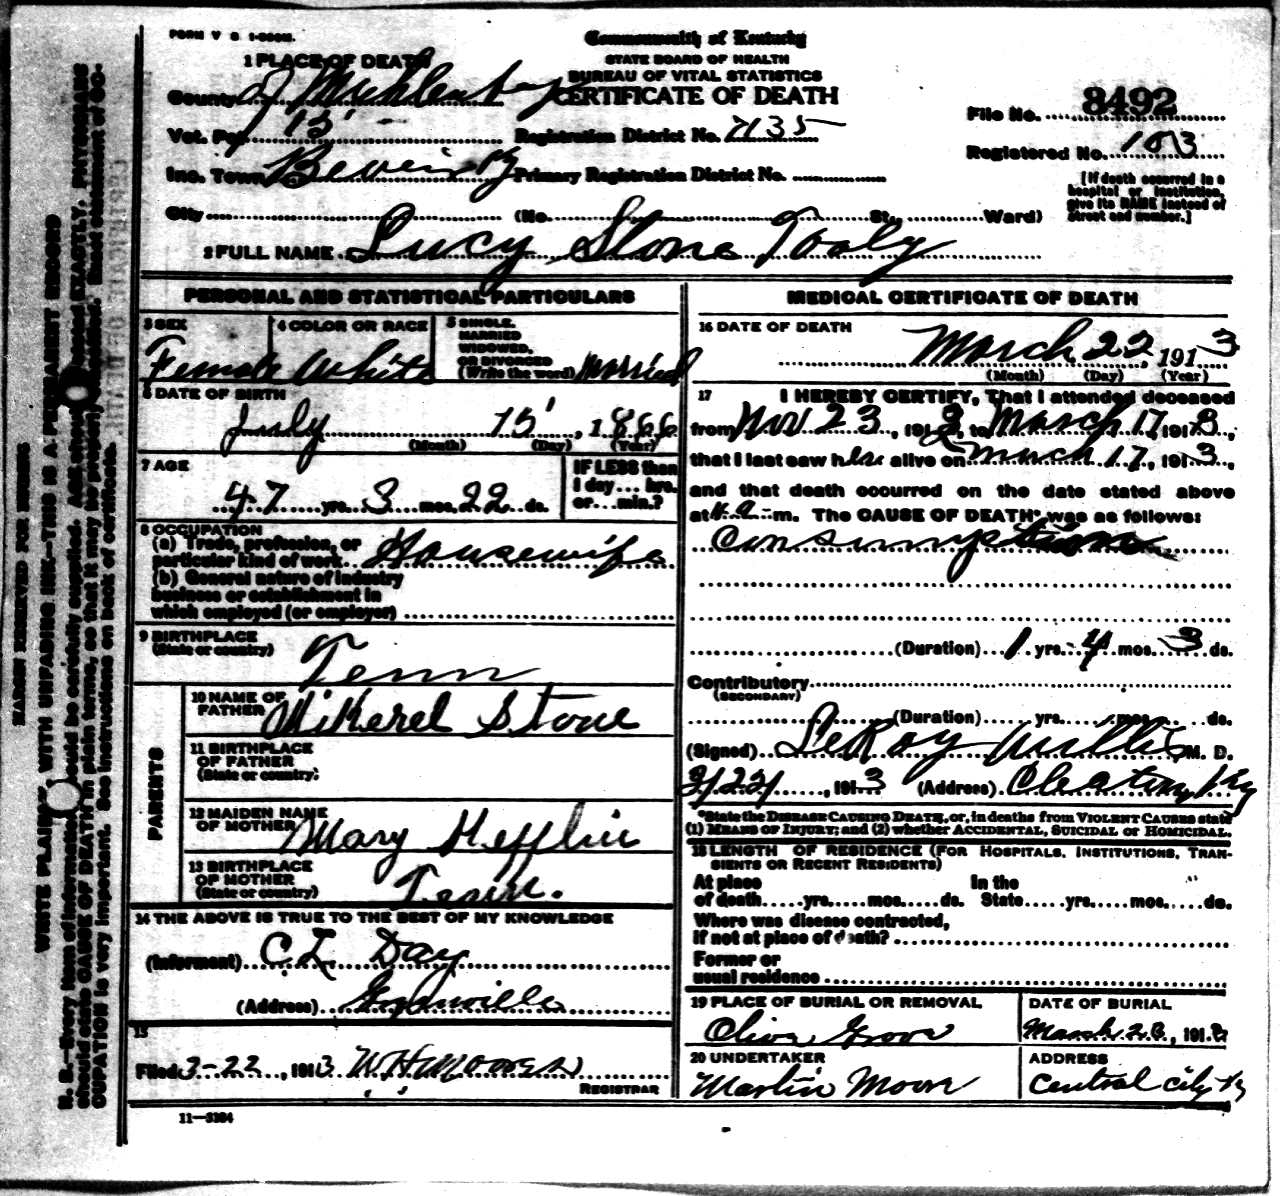 FORM V S 1-500M.
Commonwealth of Kentucky
STATE BOARD OF HEALTH
BUREAU OF VITAL STATISTICS
CERTIFICATE OF DEATH
1 PLACE OF DEATH
County of Muhlenberg
Vot. Pct. 15
Inc. Town
City
Registration District No. 7135
Primary Registration District No.
(No. St., Ward)
File No. 8492
Registered No. 103
[If death occurred in a
hospital or institution,
give its NAME instead of
street and number.]
2 FULL NAME Lucy Stone Tooly
PERSONAL AND STATISTICAL PARTICULARS
3 SEX
Female
4 COLOR OR RACE
White
5 SINGLE,
MARRIED
WIDOWED,
OR DIVORCED
(Write the word) Married
6 DATE OF BIRTH
July 15, 1866
(Month) (Day) (Year)
7 AGE
47 yrs. 3 mos. 22 ds.
IF LESS than
1 day ... hrs.
or ... min.?
8 OCCUPATION
(a) Trade, profession, or
particular kind of work Housewife
(b) General nature of industry
business or establishment in
which employed (or employer)
9 BIRTHPLACE
(State or country)
Tenn
PARENTS
10 NAME OF
FATHER Mikerel Stone
11 BIRTHPLACE
OF FATHER
(State or country)
12 MAIDEN NAME
OF MOTHER Mary Hefflin
13 BIRTHPLACE
OF MOTHER
(State or country) Tenn.
14 THE ABOVE IS TRUE TO THE BEST OF MY KNOWLEDGE
(Informant) C L Day
(Address) Greenville
15
Filed 3-22, 1913 W H Moores
REGISTRAR
11—3184
MEDICAL CERTIFICATE OF DEATH
16 DATE OF DEATH
March 22, 1913
(Month) (Day) (Year)
17 I HEREBY CERTIFY, That I attended deceased
from Nov 23, 191 , to March 17, 1913,
that I last saw her alive on March 17, 1913,
and that death occurred on the date stated above
at m. The CAUSE OF DEATH* was as follows:
Consumption
(Duration) 1 yrs. 4 mos. 3 ds.
Contributory
(SECONDARY)
(Duration) yrs. mos. ds.
(Signed) LeRoy Willis, M. D.
3/22, 1913 (Address) Cleaton, Ky
*State the DISEASE CAUSING DEATH, or, in deaths from VIOLENT CAUSES state
(1) MEANS OF INJURY; and (2) whether ACCIDENTAL, SUICIDAL or HOMICIDAL.
18 LENGTH OF RESIDENCE (FOR HOSPITALS, INSTITUTIONS, TRAN-
SIENTS OR RECENT RESIDENTS)
At place
of death yrs. mos. ds.
In the
State yrs. mos. ds.
Where was disease contracted,
if not at place of death?
Former or
usual residence
19 PLACE OF BURIAL OR REMOVAL
Olive Grove
DATE OF BURIAL
March 23, 1913
20 UNDERTAKER
Martin Moore
ADDRESS
Central City Ky
MARGIN RESERVED FOR BINDING
WRITE PLAINLY, WITH UNFADING INK—THIS IS A PERMANENT RECORD
N. B.—Every item of information should be carefully supplied. AGE should be stated EXACTLY. PHYSICIANS
should state CAUSE OF DEATH in plain terms, so that it may be properly classified. Exact statement of OC-
CUPATION is very important. See instructions on back of certificate.